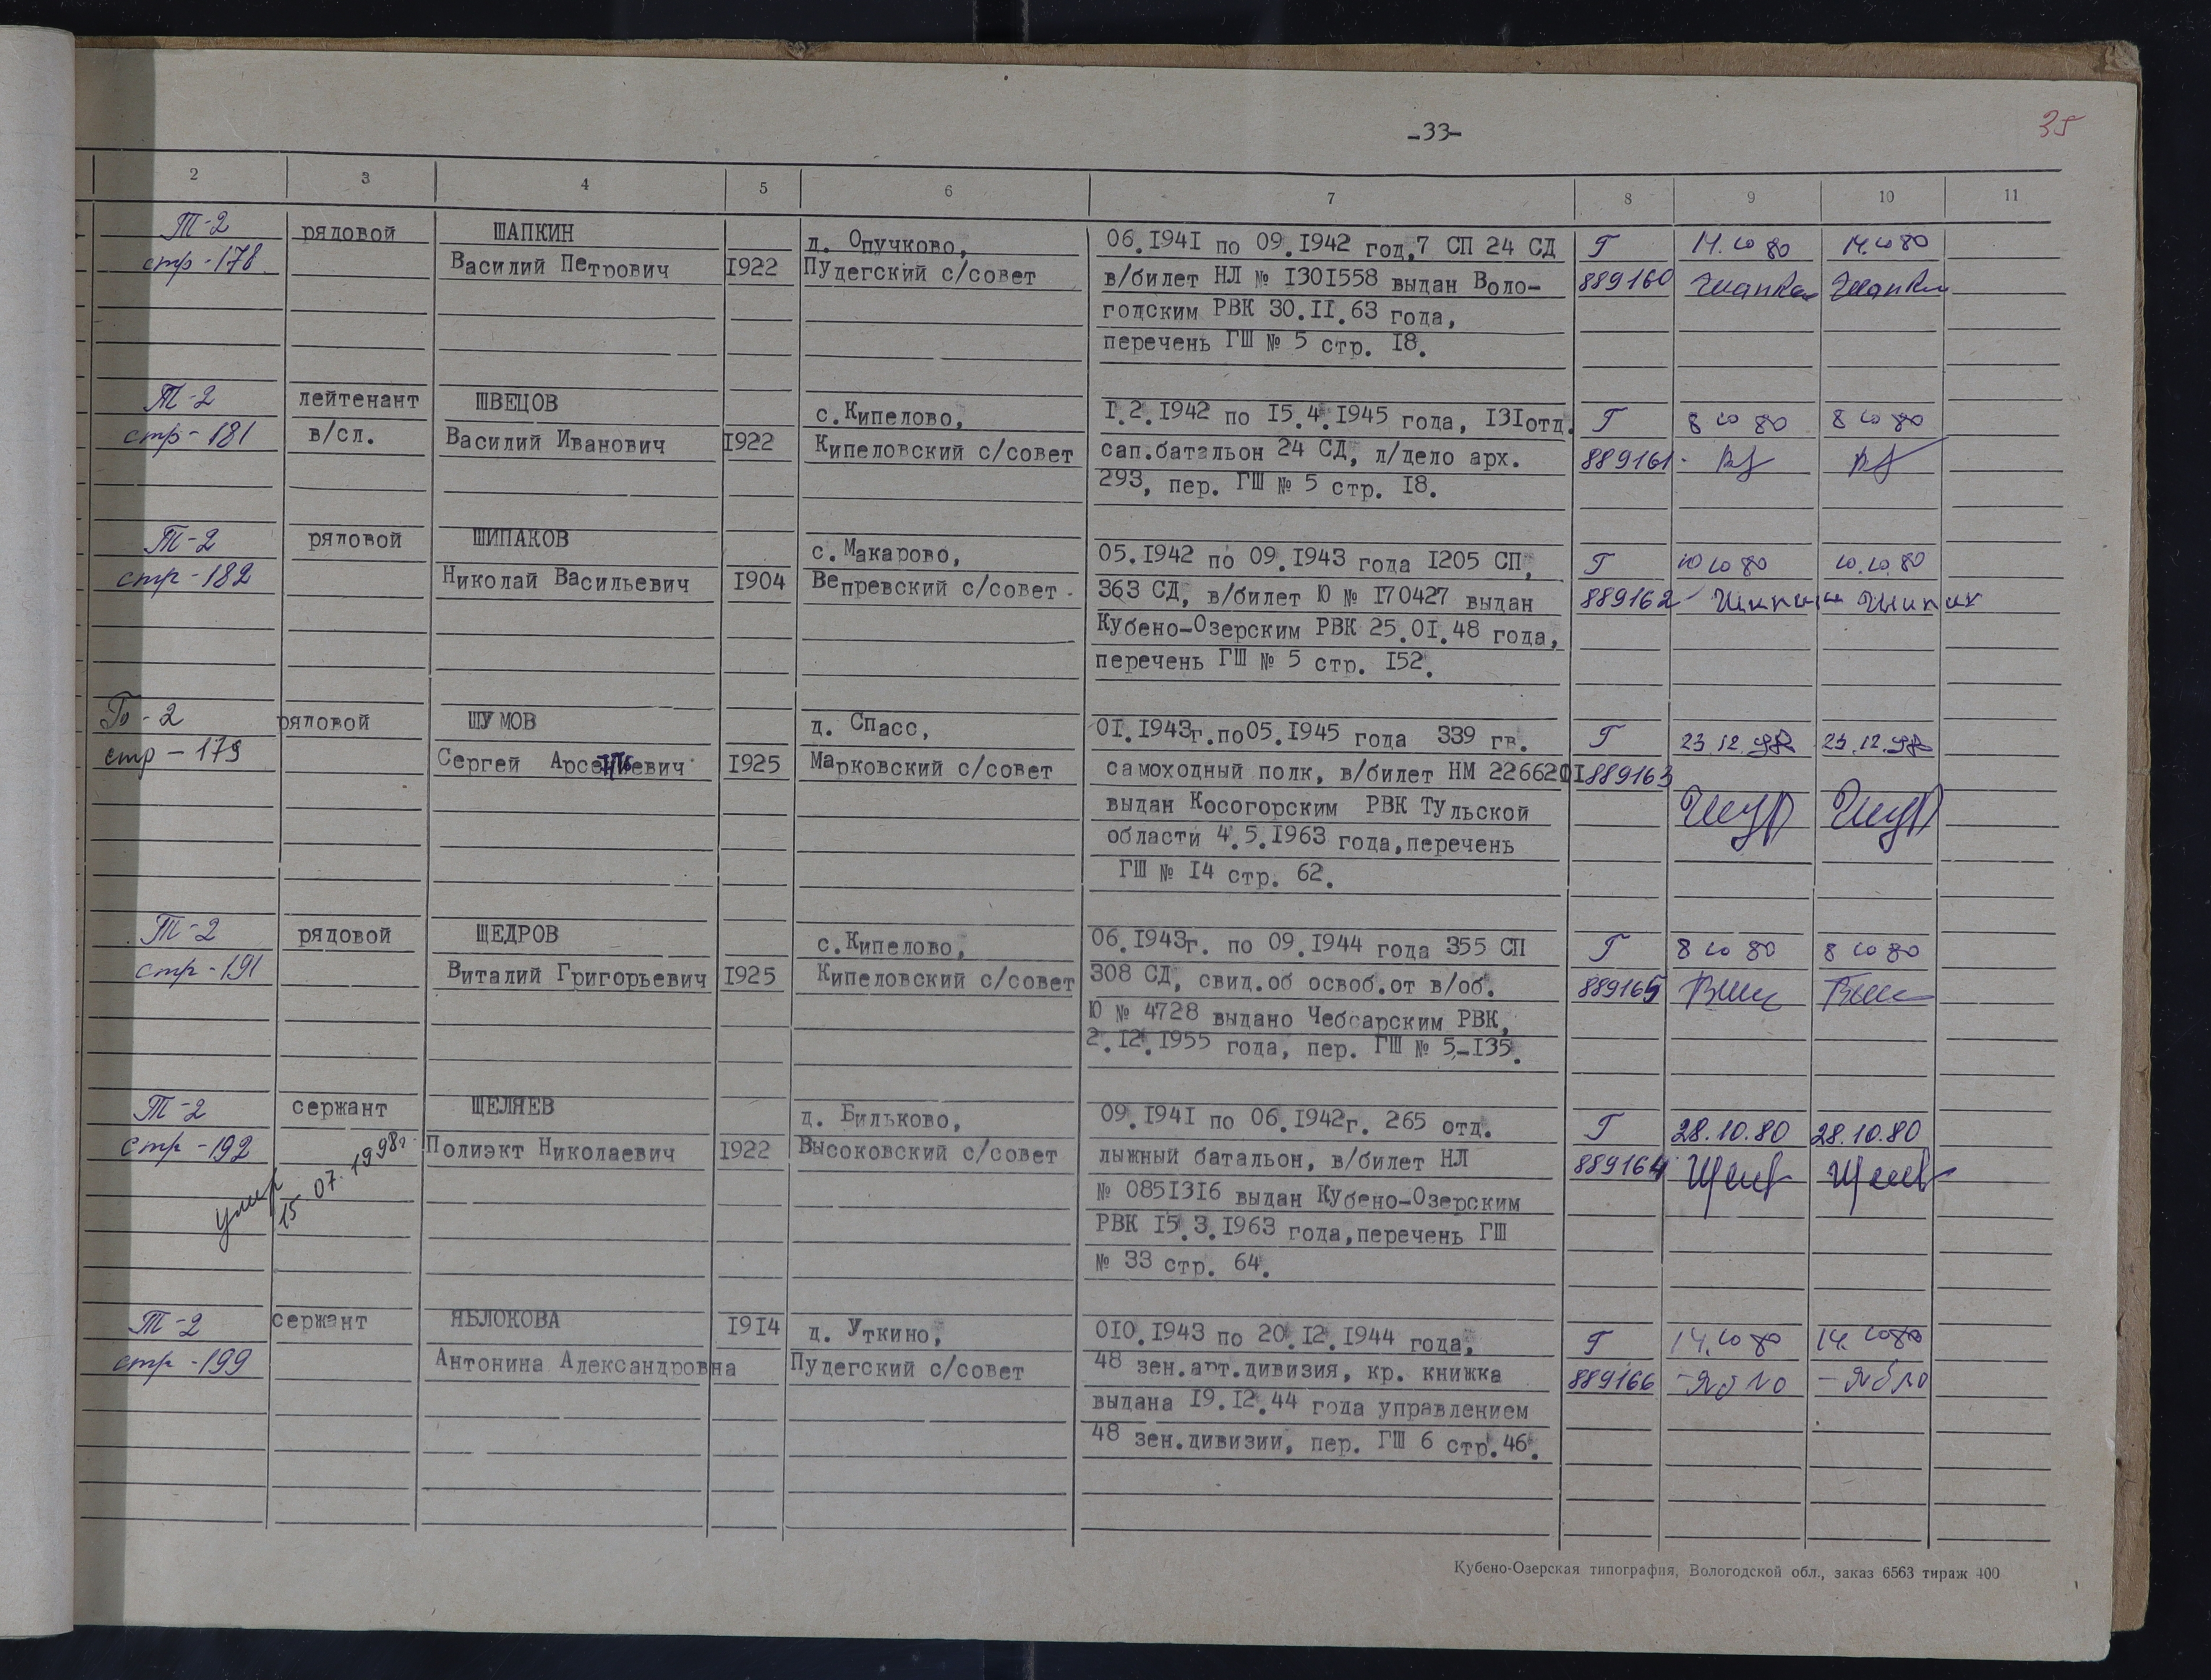 -33-
35
2 3 4 5 6 7 8 9 10 11
Т-2 рядовой ШАПКИН д. Опучково, 06.1941 по 09.1942 год,7 СП 24 СД Г 14.10 80 14.10 80
стр-178 Василий Петрович 1922 Пудегский с/совет в/билет НЛ № 1301558 выдан Воло- 889160 Шапкин Шапкин
годским РВК 30.11.63 года,
перечень ГШ № 5 стр. 18.
Т-2 лейтенант ШВЕЦОВ с.Кипелово, 1.2.1942 по 15.4.1945 года, 131отд. Г 8 10 80 8 10 80
стр-181 в/сл. Василий Иванович 1922 Кипеловский с/совет сап.батальон 24 СД, л/дело арх. 889161
293, пер. ГШ № 5 стр. 18.
Т-2 рядовой ШИПАКОВ с.Макарово, 05.1942 по 09.1943 года 1205 СП, Г 10 10 80 10.10.80
стр-182 Николай Васильевич 1904 Вепревский с/совет 363 СД, в/билет Ю № 170427 выдан 889162
Кубено-Озерским РВК 25.01.48 года,
перечень ГШ № 5 стр. 152.
Т-2 рядовой ШУМОВ д. Спасс, 01.1943г.по05.1945 года 339 гв. Г 23.12. 23.12.
стр-179 Сергей 1925 Марковский с/совет самоходный полк, в/билет НМ 2266201 889163
выдан Косогорским РВК Тульской
области 4.5.1963 года,перечень
ГШ № 14 стр. 62.
Т-2 рядовой ЩЕДРОВ с.Кипелово, 06.1943г. по 09.1944 года 355 СП Г 8 10 80 8 10 80
стр-191 Виталий Григорьевич 1925 Кипеловский с/совет 308 СД, свид.об освоб.от в/об. 889165
Ю № 4728 выдано Чебсарским РВК,
2.12.1955 года, пер. ГШ № 5-135.
Т-2 сержант ЩЕЛЯЕВ д. Бильково, 09.1941 по 06.1942г. 265 отд. Г 28.10.80 28.10.80
стр-192 Полиэкт Николаевич 1922 Высоковский с/совет лыжный батальон, в/билет НЛ 889164
умер 15 07. 1998г.
№ 0851316 выдан Кубено-Озерским
РВК 15.3.1963 года,перечень ГШ
№ 33 стр. 64.
Т-2 сержант ЯБЛОКОВА 1914 д. Уткино, 010.1943 по 20.12.1944 года, Г 14.10 80 14.10 80
стр-199 Антонина Александровна Пудегский с/совет 48 зен.арт.дивизия, кр. книжка 889166 -Ябло -Ябло
выдана 19.12.44 года управлением
48 зен.дивизии, пер. ГШ 6 стр.46.
Кубено-Озерская типография, Вологодской обл., заказ 6563 тираж 400